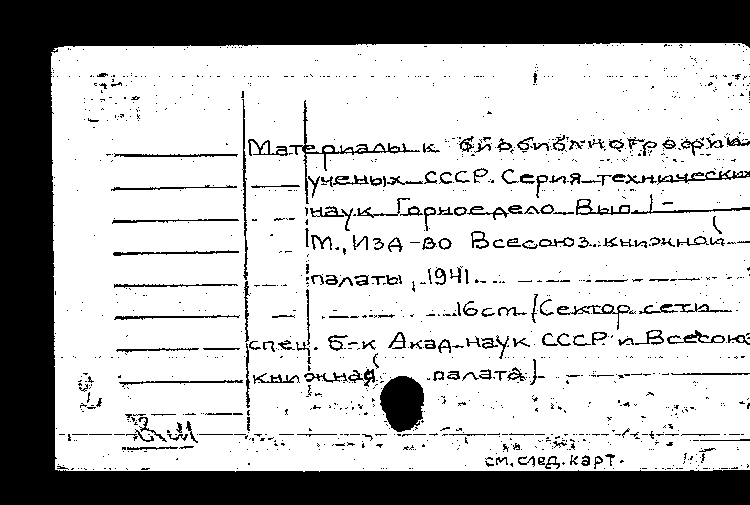 Материалы к биобиблиографии
ученых СССР. Серия технических
наук Горное дело. Вып. 1-
М., Изд-во Всесоюз. книжной
палаты, 1941.
16 cm (Сектор сети
спец. б-к Акад. наук СССР и Всесоюз
книжная палата)
2
см. след. карт.